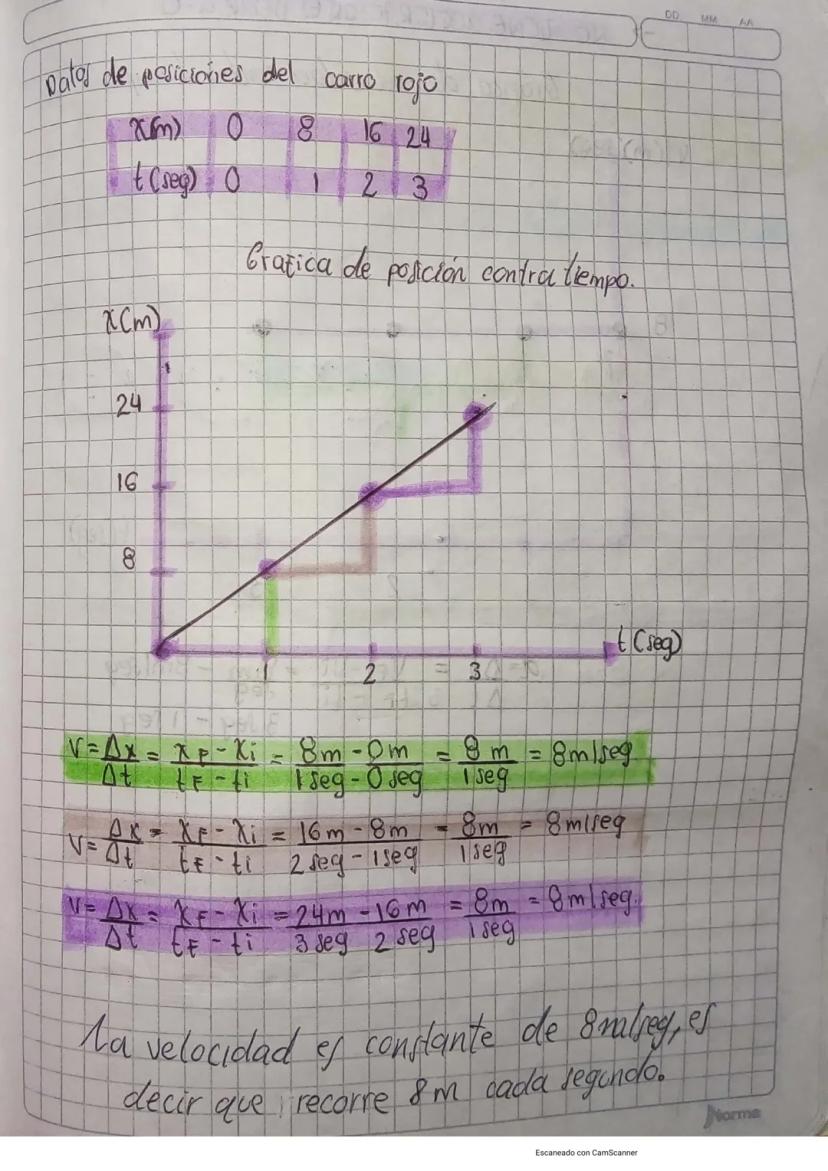 DD MM AA
Datos de posiciones del carro rojo
x(m) 0 8 16 24
t(seg) 0 1 2 3
Gratica de posición contra tiempo.
x(m)
24
16
8
t(seg)
1 2 3
V = Δx/Δt = xF - xi/tF - ti = 8m - 0m/1seg - 0seg = 8m/1seg = 8m/seg
V = Δx/Δt = xF - xi/tF - ti = 16m - 8m/2seg - 1seg = 8m/1seg = 8m/seg
V = Δx/Δt = xF - xi/tF - ti = 24m - 16m/3seg 2seg = 8m/1seg = 8m/seg.
La velocidad es constante de 8m/seg, es
decir que recorre 8m cada segundo.
Norma
Escaneado con CamScanner